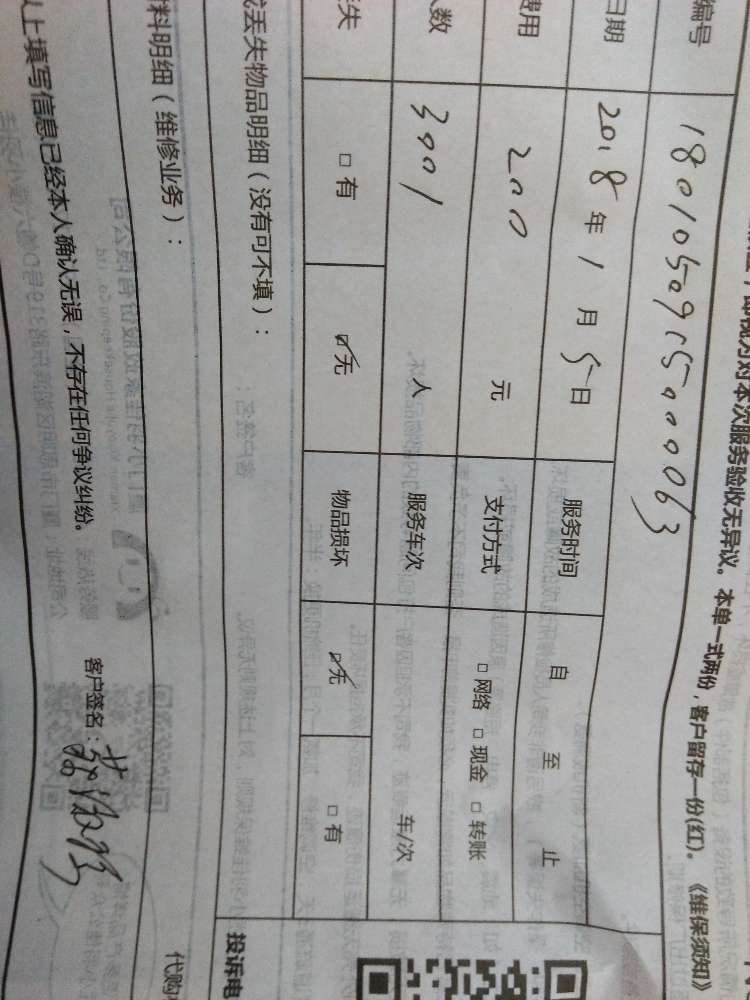 即视为对本次服务验收无异议。本单一式两份，客户留存一份(红)。《维保须知》
编号 18010509155000063
日期 2018年1月5日 服务时间 自 至 止
费用 200 元 支付方式 □网络 □现金 □转账
人数 3001 人 服务车次 车/次
丢失 □有 ☑无 物品损坏 ☑无 □有
丢失物品明细（没有可不填）： 投诉电
料明细（维修业务）： 代购
以上填写信息已经本人确认无误，不存在任何争议纠纷。
客户签名：